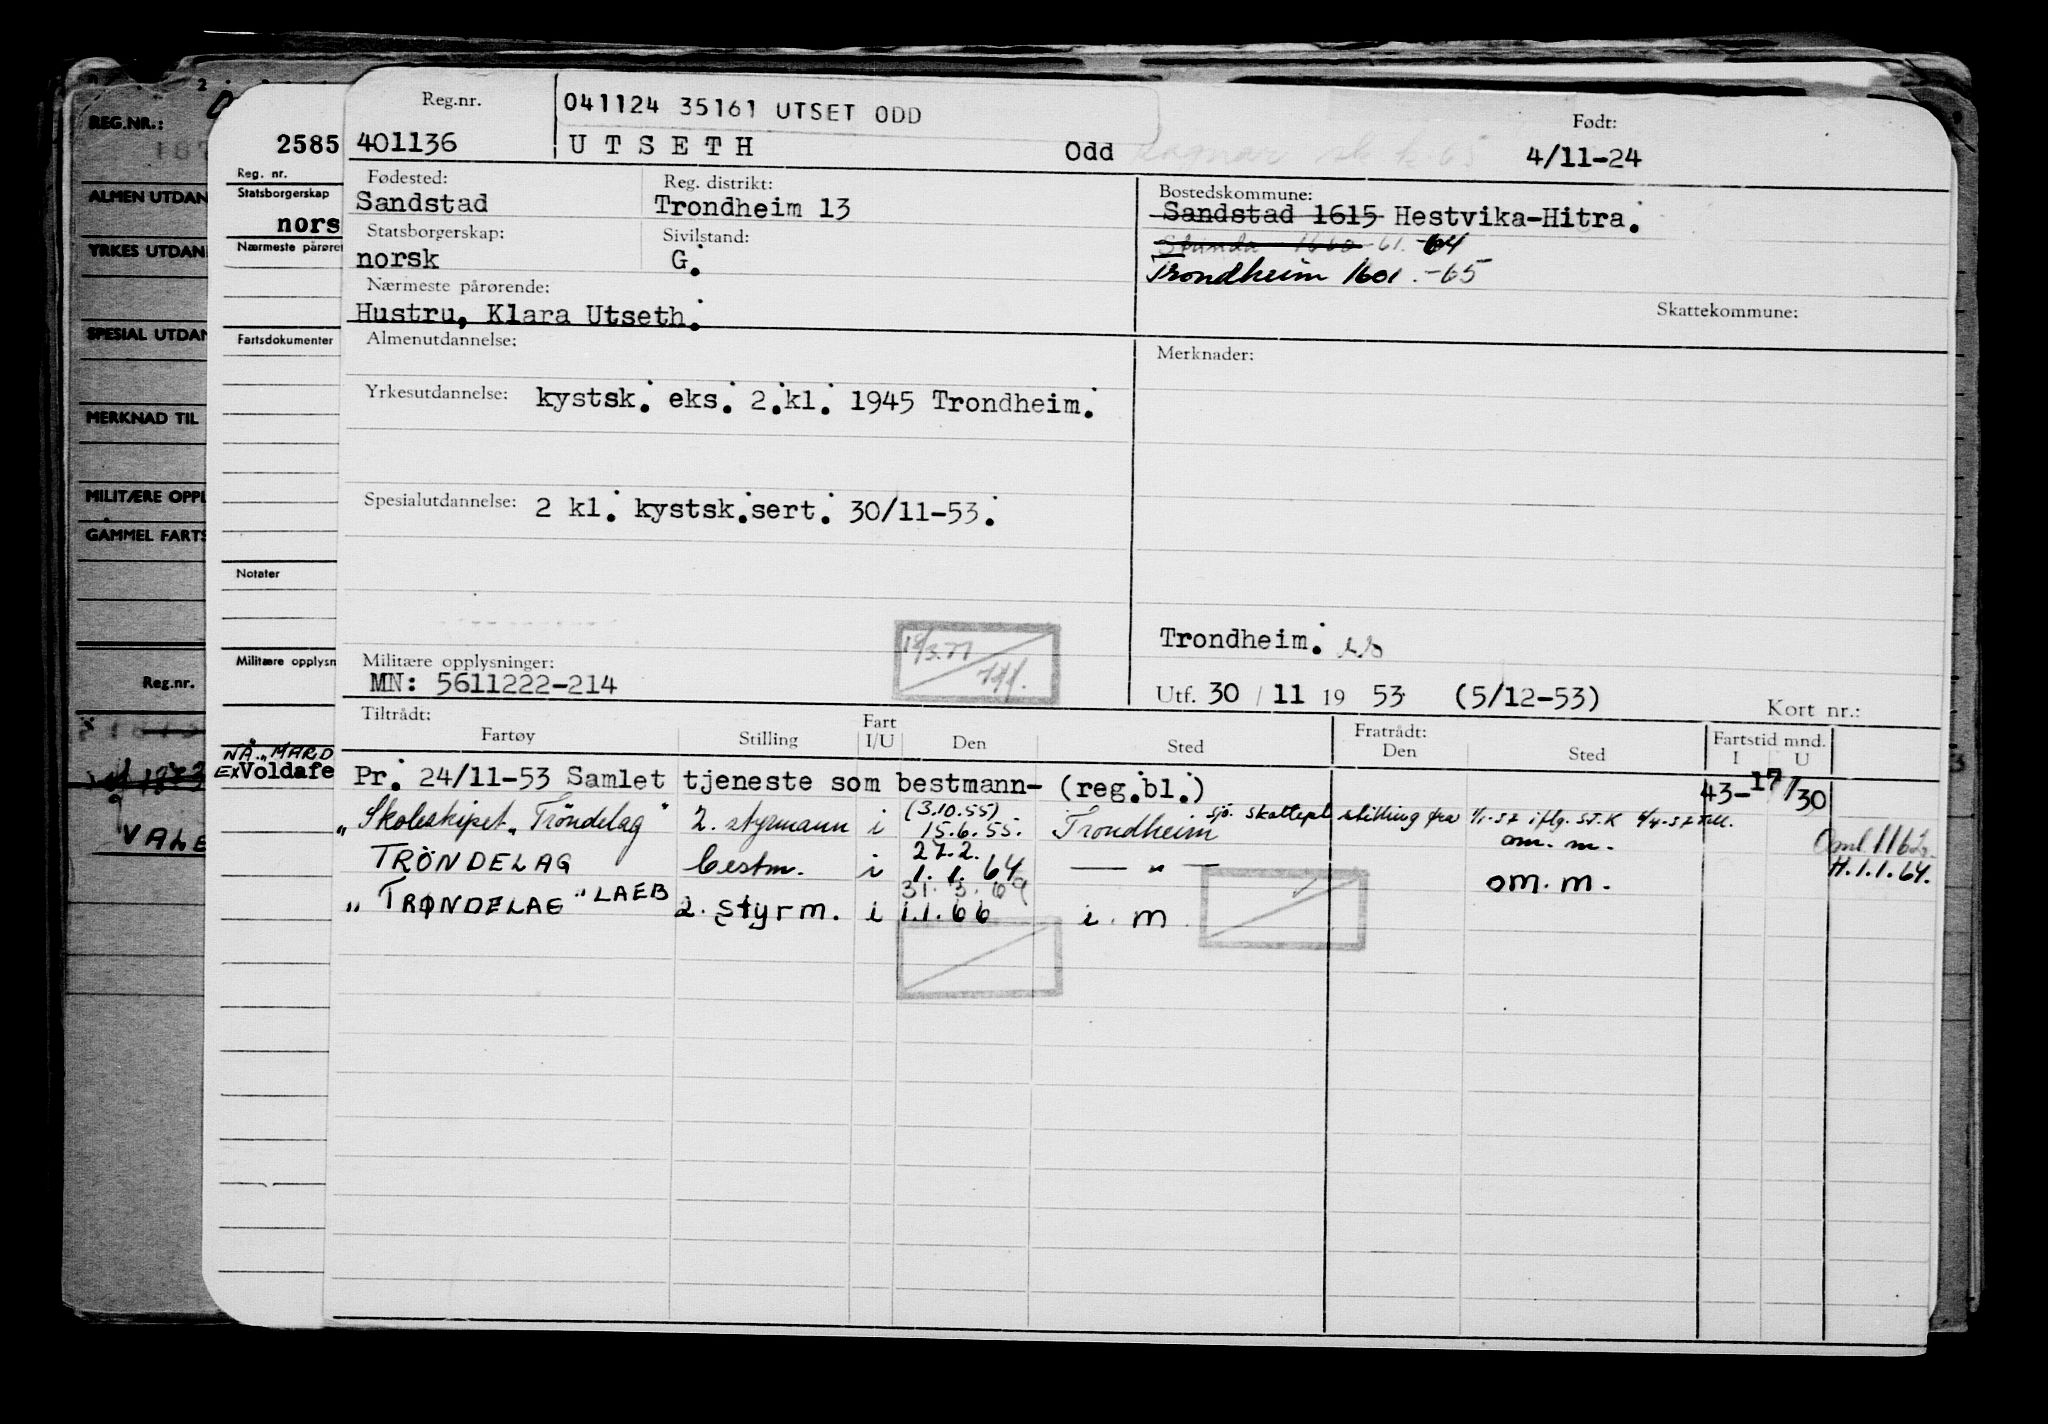 REG.NR.:
ALMEN UTDAN
YRKES UTDAN
SPESIAL UTDAN
MERKNAD TIL
MILITÆRE OPPL
GAMMEL FARTS
Reg.nr.
VALE
2585
Reg. nr.
Statsborgerskap
nors
Nærmeste pårøre
Fartsdokumenter
Notater
Militære opplysn
NÅ „MARD
EX Voldafe
Reg.nr.
401136
041124 35161 UTSET ODD
UTSETH Odd Ragnar
Født:
4/11-24
Fødested:
Sandstad
Reg. distrikt:
Trondheim 13
Statsborgerskap:
norsk
Sivilstand:
G.
Nærmeste pårørende:
Hustru, Klara Utseth.
Bostedskommune:
Sandstad 1615 Hestvika-Hitra.
Strinda 1660-61.-64
Trondheim 1601.-65
Skattekommune:
Almenutdannelse:
Yrkesutdannelse: kystsk. eks. 2.kl. 1945 Trondheim.
Spesialutdannelse: 2 kl. kystsk.sert. 30/11-53.
Merknader:
Militære opplysninger:
MN: 5611222-214
Trondheim.
Utf. 30 / 11 19 53 (5/12-53)
Kort nr.:
Tiltrådt:
Fartøy Stilling Fart I/U Den Sted
Fratrådt:
Den Sted
Fartstid mnd.
I U
Pr. 24/11-53 Samlet tjeneste som bestmann- (reg.bl.) 43-17/30
„Skoleskipet „Tröndelag" 2. styrmann i (3.10.55) 15.6.55. Trondheim sjö. skattepl. stilling fra 1/1-57 iflg. S.T.K
om. m.
TRÖNDELAG bestm. i 27.2. 1.1.64 — " — om. m. H.1.1.64.
„TRØNDELAG" LAEB 2. styrm. i 31.3.69 1.1.66 i. m